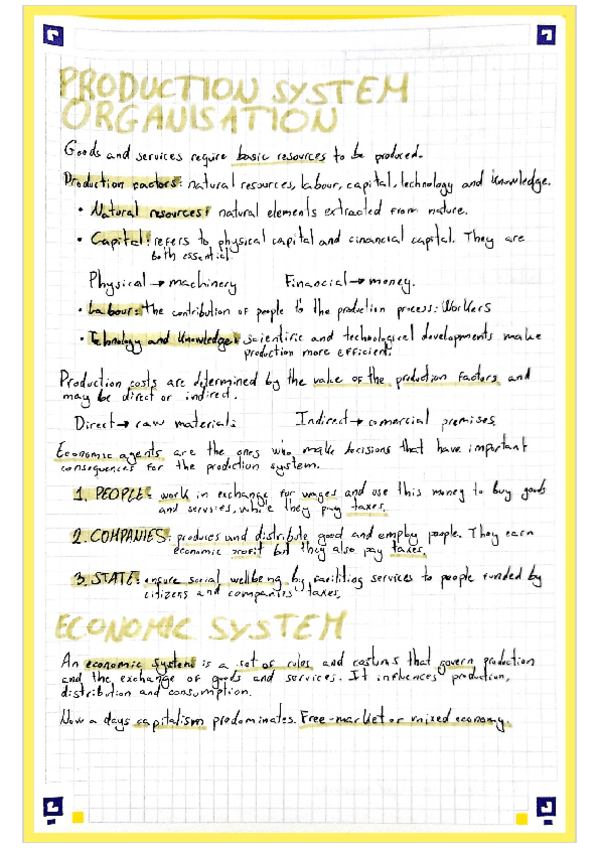 PRODUCTION SYSTEM
ORGANISATION
Goods and services require basic resources to be produced.
Production factors: natural resources, labour, capital, technology and knowledge.
• Natural resources: natural elements extracted from nature.
• Capital: refers to physical capital and financial capital. They are
both essential.
Physical → machinery Financial → money.
• Labour: the contribution of people to the production process: Workers
• Tehnology and knowledge: scientific and technological developments make
production more efficient.
Production costs are determined by the value of the production factors and
may be direct or indirect.
Direct → raw materials Indirect → comercial premises.
Economic agents are the ones who make decisions that have important
consequences for the production system.
1. PEOPLE: work in exchange for wages and use this money to buy goods
and services, while they pay taxes.
2. COMPANIES: produces and distribute good and employ people. They earn
economic profit but they also pay taxes.
3. STATE: ensure social wellbeing by faciliting services to people funded by
citizens and companies' taxes.
ECONOMIC SYSTEM
An economic system is a set of rules and costums that govern production
and the exchange of goods and services. It influences production,
distribution and consumption.
Now a days capitalism predominates. Free-market or mixed economy.